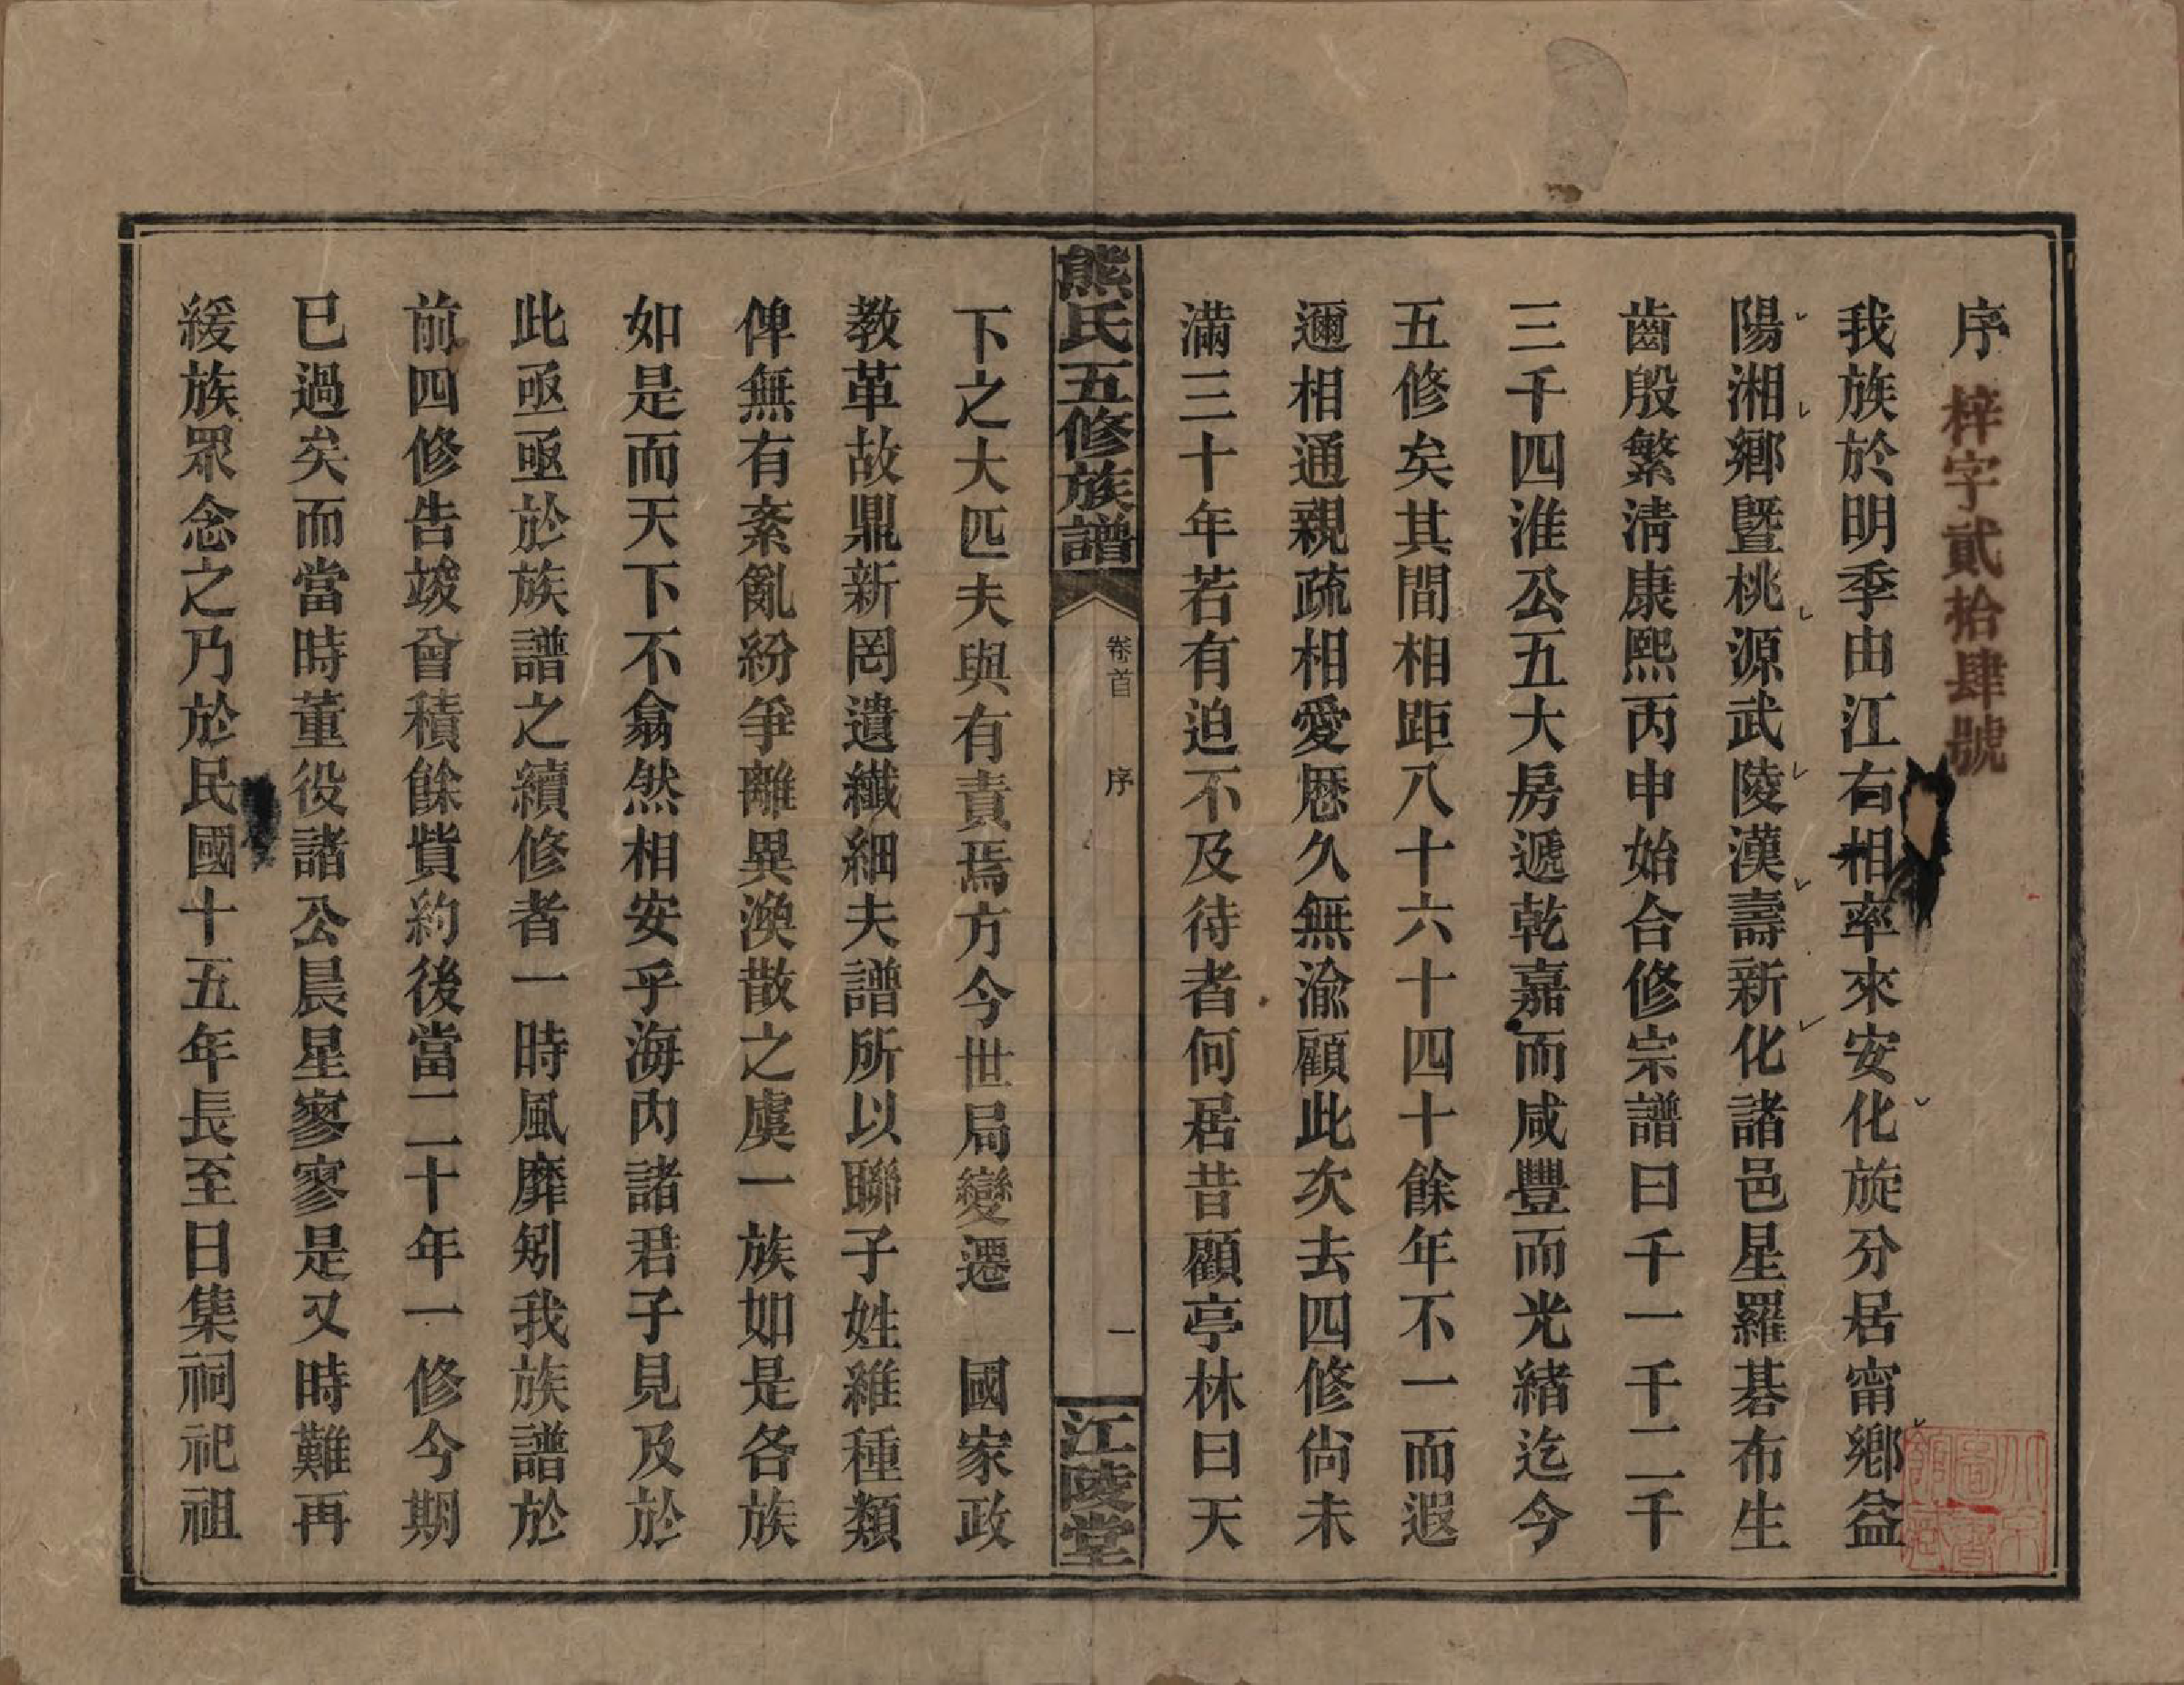 序
梓字貳拾肆號
我族於明季由江右相率來安化旋分居甯鄉益
陽湘鄉暨桃源武陵漢壽新化諸邑星羅碁布生
齒殷繁淸康熙丙申始合修宗譜曰千一千二千
三千四淮公五大房遞乾嘉而咸豐而光緖迄今
五修矣其間相距八十六十四十餘年不一而遐
邇相通親疏相愛厯久無渝顧此次去四修尙未
滿三十年若有迫不及待者何居昔顧亭林曰天
熊氏五修族譜
卷首
序
一
江陵堂
下之大匹夫與有責焉方今世局變遷 國家政
教革故鼎新罔遺纖細夫譜所以聯子姓維種類
俾無有紊亂紛爭離異渙散之虞一族如是各族
如是而天下不翕然相安乎海內諸君子見及於
此亟亟於族譜之續修者一時風靡矧我族譜於
前四修告竣曾積餘貲約後當二十年一修今期
已過矣而當時董役諸公晨星寥寥是又時難再
緩族眾念之乃於民國十五年長至日集祠祀祖